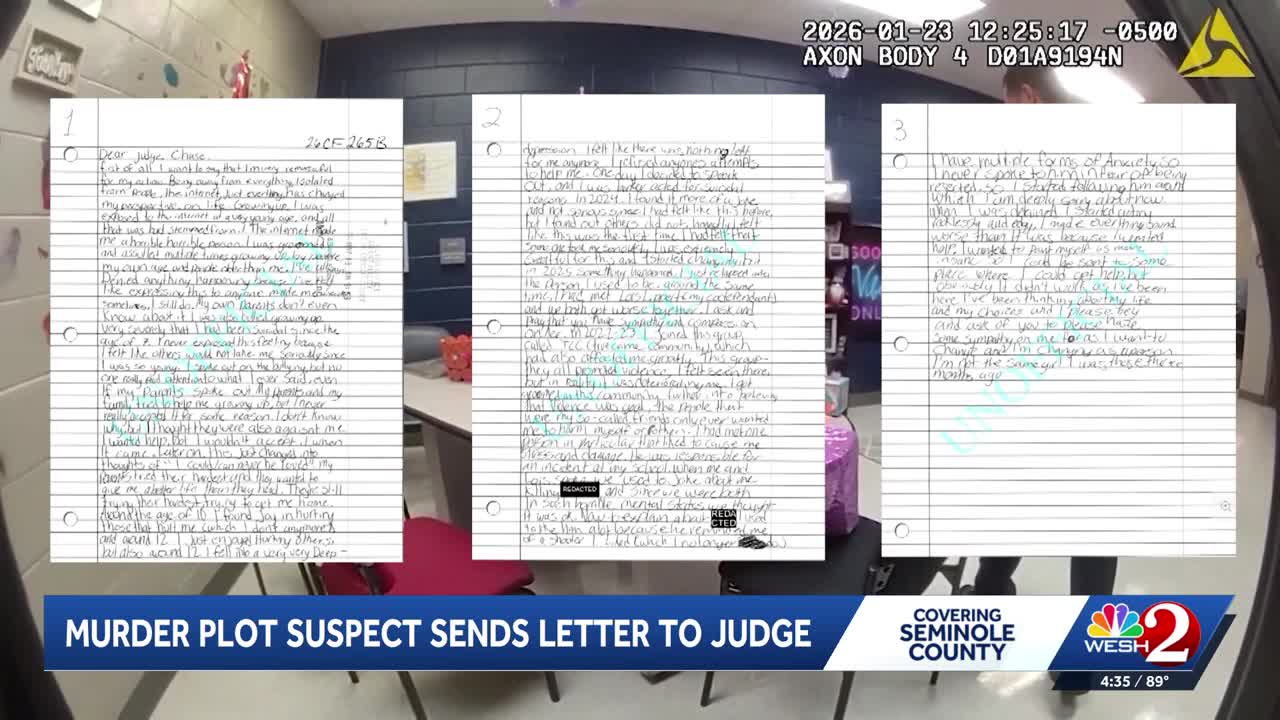 2026-01-23 12:25:17 -0500
AXON BODY 4 D01A9194N
1
26CF265B
Dear Judge Chase,
first of all I want to say that I'm very remorseful
for my action. Being away from everything, isolated
from people, the internet, just everything has changed
my perspective on life. Growing up I was
exposed to the internet at a very young age, and all
that was bad stemmed from it. The internet made
me a horrible horrible person. I was groomed
and assulted multiple times growing up by people
my own age and people older than me. I've
denied anything happening because I've felt
like expressing this to anyone made me
somehow, I still do. My own parents don't even
know about it. I was also bullied growing up
very severely that I had been suicidal since the
age of 7. I never expressed this feeling because
I felt like others would not take me seriously since
I was so young. I spoke out on the bullying but no
one really paid attention to what I ever said, even
if my parents spoke out. My parents and my
family tried to help me growing up, but I never
really accepted it for some reason. I don't know
why but I thought they were also against me.
I wanted help but I wouldn't accept it when
it came. Later on, this just changed into
thoughts of "I could/can never be loved" my
parents tried their hardest and they wanted to
give me a better life than they had. They're still
trying their hardest trying to get me home.
Around the age of 10 I found joy in hurting
those that hurt me (which I don't anymore)
and around 12 I just enjoyed hurting others
but also around 12 I fell into a very very Deep-
2
depression. I felt like there was nothing left
for me anymore. I refused anyones attempts
to help me. One day I decided to speak
out, and I was baker acted for suicidal
reasons. In 2024 I found it more of a joke
and not serious since I had felt like this before,
but I found out others did not
like this was the first time I had felt that
someone took me seriously. I was extremely
Greatful for this and I started changing, but
in 2025 something happened. I just relapsed into
the person I used to be. around the same
time I had met Lois (one of my codefendants)
and we both got worse together. I ask and
pray that you have sympathy and compassion
on her. In 2022-2023 I joined this group
called TCC (true crime community) which
had also affected me greatly. This group-
they all promoted violence. I felt seen there,
but in reality it was deteriorating me. I got
groomed in this community further into believing
that violence was good. The people that
were my so-called friends only ever wanted
me to harm myself or others. I had met one
person in particular that liked to cause me
stress and damage. He was responsible for
an incident at my school. When me and
Lois spoke we used to joke about me
killing REDACTED and since we were both
in such horrible mental states we thought
it was ok. Now to explain about REDA CTED I used
to like him alot because he reminded me
of a shooter I liked (which I no longer do)
3
I have multiple forms of Anxiety so
I never spoke to him in fear of being
rejected, so I started following him around
which I am deeply sorry about now.
When I was detained I started acting
carelessly and edgy. I made everything sound
worse than it was because I wanted
help. I wanted to paint myself as more
insane so I could be sent to some
place where I could get help but
obviously it didn't work and I've been
here. I've been thinking about my life
and my choices and I please beg
and ask of you to please have
some sympathy on me for as I want to
change and I'm changing as a person.
I'm not the same girl I was those three
months ago.
SOO
ONL
MURDER PLOT SUSPECT SENDS LETTER TO JUDGE
COVERING
SEMINOLE
COUNTY
WESH 2
4:35 / 89°